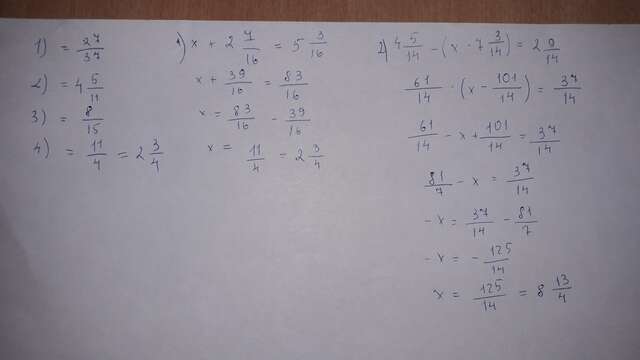 1) = 27/37
2) = 4 5/11
3) = 8/15
4) = 11/4 = 2 3/4
1) x + 2 7/16 = 5 3/16
x + 39/16 = 83/16
x = 83/16 - 39/16
x = 11/4 = 2 3/4
2) 4 5/14 - (x - 7 3/14) = 2 9/14
61/14 - (x - 101/14) = 37/14
61/14 - x + 101/14 = 37/14
81/7 - x = 37/14
-x = 37/14 - 81/7
-x = - 125/14
x = 125/14 = 8 13/4